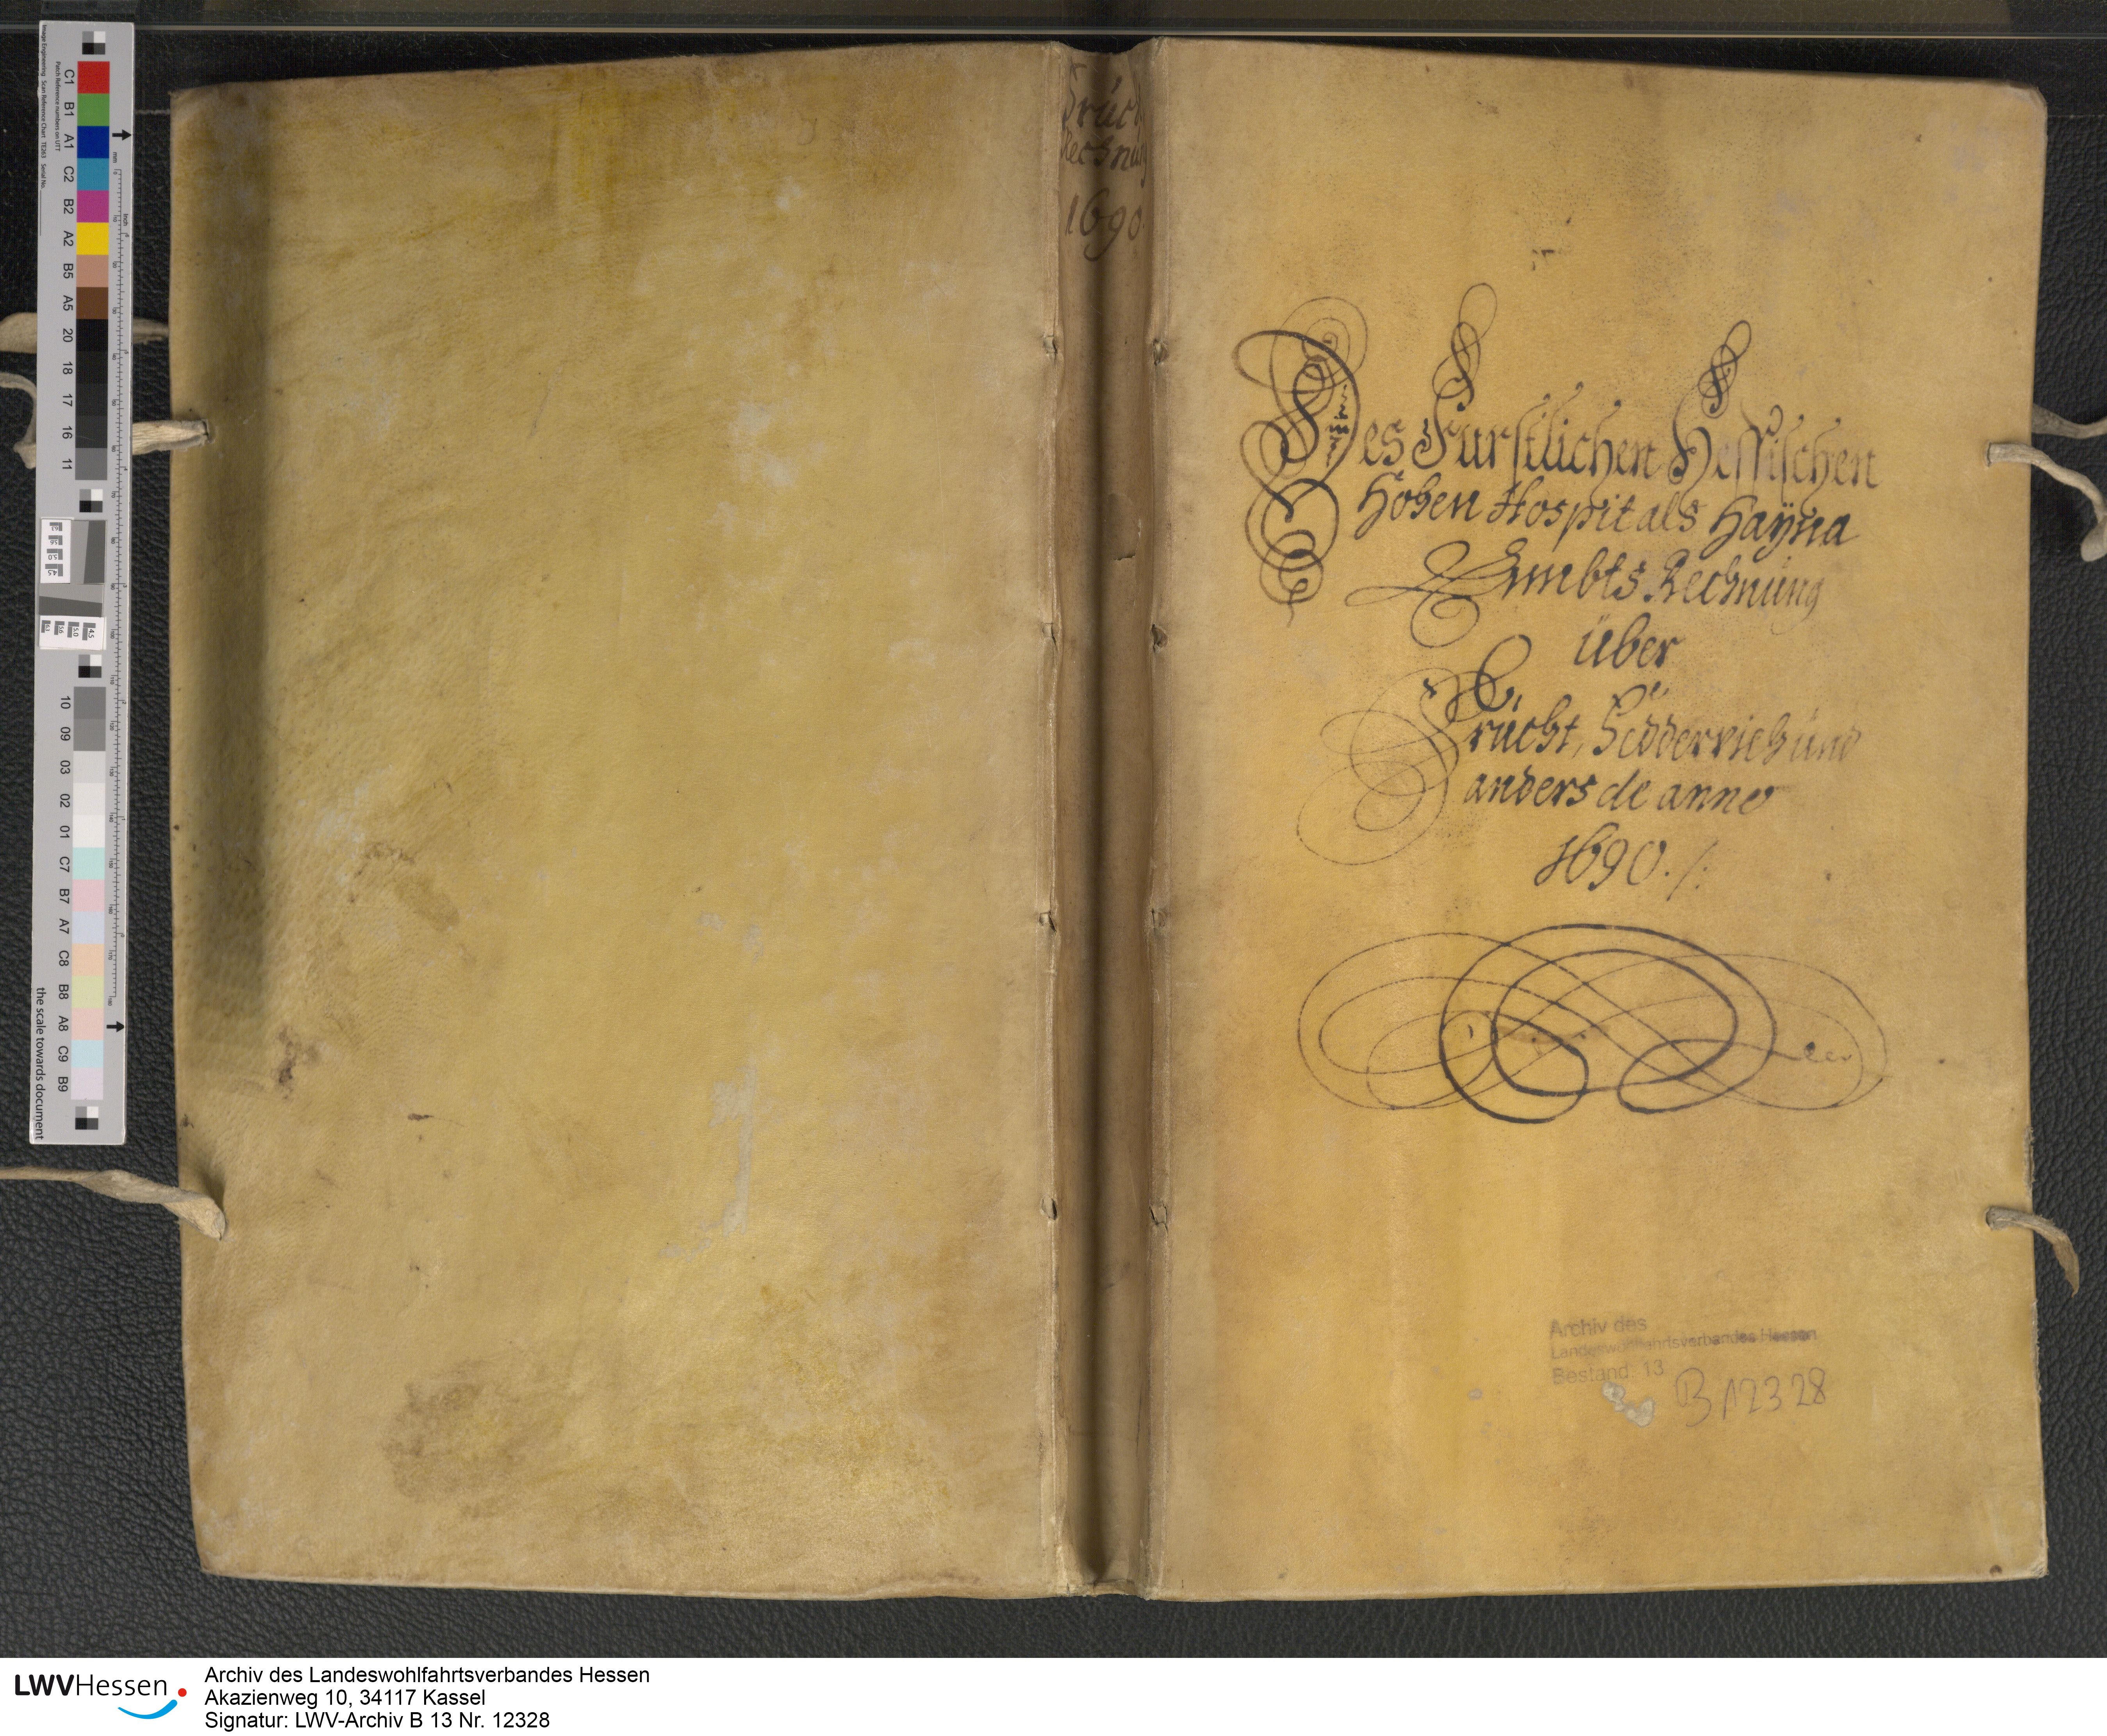 Frucht
Rechnung
1690
Des Fürstlichen Hessischen
Hohen Hospitals Haÿna
Ambts Rechnung
über
Frucht, Federvieh und
anders de anno
1690./:
Archiv des
Landeswohlfahrtsverbandes Hessen
Bestand: 13
B 12328
LWVHessen
Archiv des Landeswohlfahrtsverbandes Hessen
Akazienweg 10, 34117 Kassel
Signatur: LWV-Archiv B 13 Nr. 12328
the scale towards document
C1 B1 A1 C2 B2 A2 B5 A5 20 18 17 16 11
10 09 03 02 01 C7 B7 A7 C8 B8 A8 C9 B9